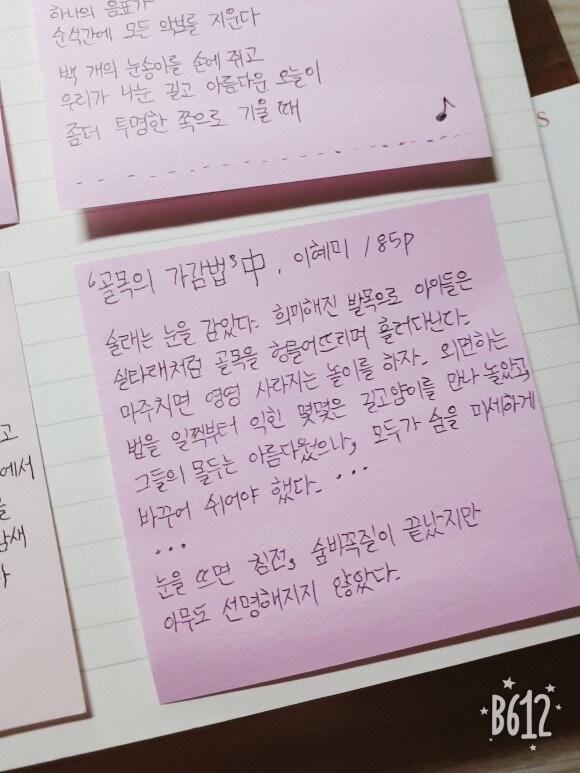 하나의 음표가
순식간에 모든 악보를 지운다
백 개의 눈송이를 손에 쥐고
우리가 나눈 길고 아름다운 오늘이
좀더 투명한 쪽으로 기울 때
S
'골목의 가감법' 中, 이혜미 / 85p
술래는 눈을 감았다. 희미해진 발목으로 아이들은
실타래처럼 골목을 헝클어뜨리며 흘러다닌다.
마주치면 영영 사라지는 놀이를 하자. 외면하는
법을 일찍부터 익힌 몇몇은 길고양이를 만나 놀았고,
그들의 몰두는 아름다웠으나, 모두가 숨을 미세하게
바꾸어 쉬어야 했다. ...
...
눈을 뜨면 침전, 숨바꼭질이 끝났지만
아무도 선명해지지 않았다.
고
에서
을
남새
B612